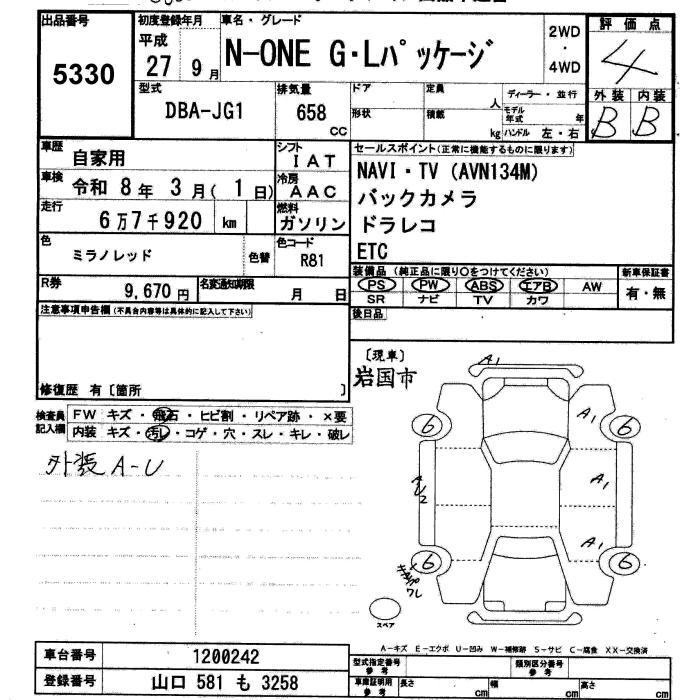 出品番号
5330
初度登録年月
平成
27 9月
車名・グレード
N-ONE G・Lパッケージ
2WD
・
4WD
評価点
4
外装 内装
B B
型式
DBA-JG1
排気量
658
CC
ドア
定員
人
ディーラー・並行
形状
積載
kg
モデル年式
年
ハンドル 左・右
車歴
自家用
シフト
IAT
車検
令和 8年 3月( 1日)
冷房
AAC
走行
6万7千920 km
燃料
ガソリン
色
ミラノレッド
色替
色コード
R81
R券
9,670円
名変通知期限
月 日
セールスポイント(正常に機能するものに限ります)
NAVI・TV (AVN134M)
バックカメラ
ドラレコ
ETC
装備品 (純正品に限り○をつけてください)
新車保証書
PS PW ABS エアB AW
SR ナビ TV カワ
有・無
後日品
注意事項申告欄(不具合内容等は具体的に記入して下さい)
修復歴 有〔箇所 〕
〔現車〕
岩国市
検査員
記入欄
FW キズ・飛石・ヒビ割・リペア跡・×要
内装 キズ・汚レ・コゲ・穴・スレ・キレ・破レ
外装 A-U
A1
6
A1
6
A
U2
A1
6
A1
6
ワレ
スペア
A-キズ E-エクボ U-凹み W-補修跡 S-サビ C-腐食 XX-交換済
車台番号
1200242
登録番号
山口 581 も 3258
型式指定番号
参考
類別区分番号
参考
車庫証明用
参考
長さ
cm
幅
cm
高さ
cm